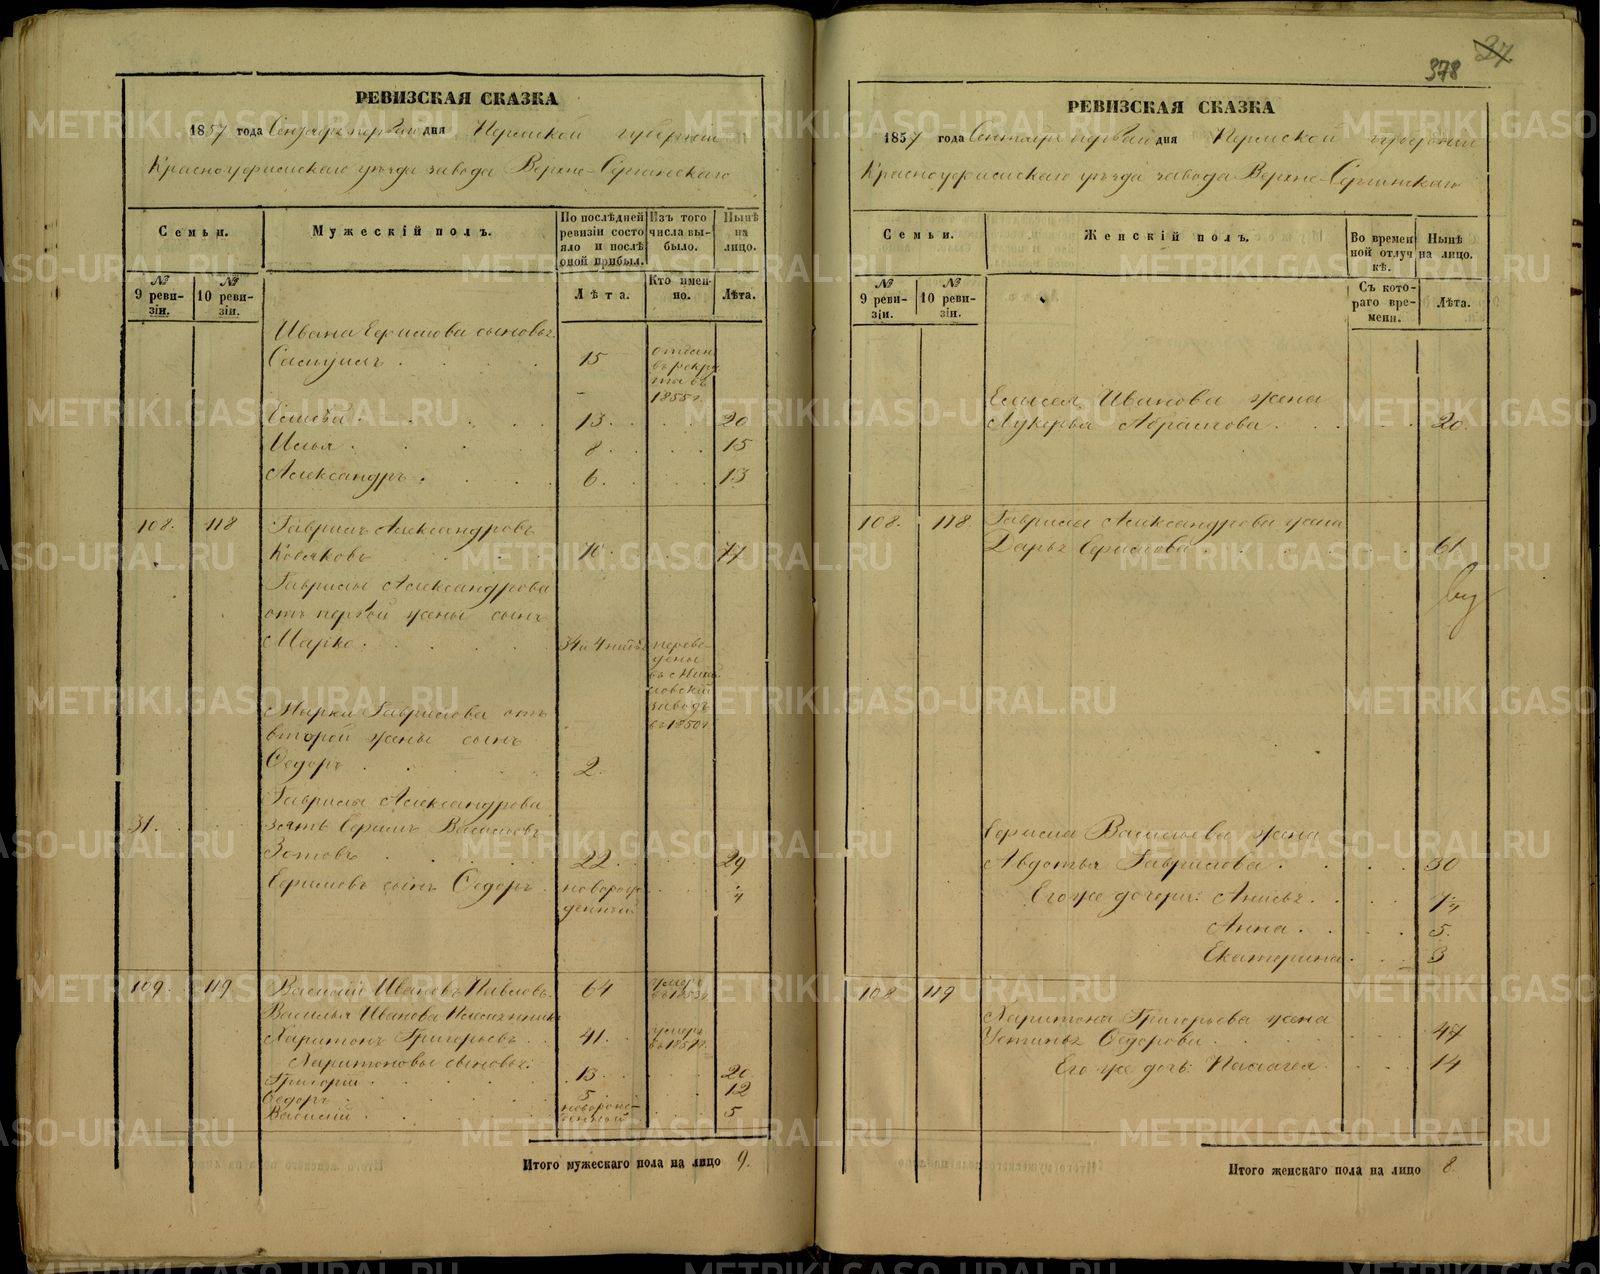 РЕВИЗСКАЯ СКАЗКА
1857 года Сентября первого дня Пермской губернии
Красноуфимского уезда завода Верхне-Сергинскаго
Семьи.
Мужескій полъ.
По послѣдней ревизіи состояло и послѣ оной прибыл.
Изъ того числа выбыло.
Нынѣ на лицо.
№ 9 ревизіи.
№ 10 ревизіи.
Лѣта.
Кто именно.
Лѣта.
Ивана Ефимова сыновья:
Самуилъ 15 отдан въ рекруты въ 1855 г.
Елисей 13 20
Илья 8 15
Александръ 6 13
108. 118 Гаврилъ Александровъ
70 77
Гаврилы Александрова
отъ первой жены сынъ
Марко 34
переведены въ
заводъ
въ 1850 г.
Марка Гаврилова отъ
второй жены сынъ
Ѳедоръ 2
Гаврилы Александрова
31. зять Ефимъ Васильевъ
Зотовъ 22 29
Ефимовъ сынъ Ѳедоръ новорожденный
109. 119 Василій Ивановъ Павловъ 64 умеръ
Василья Иванова племянникъ
Харитонъ Григорьевъ 41 умеръ
Харитоновы сыновья:
Григорій 13 20
Ѳедоръ 5 12
Василій новорожденный 5
Итого мужескаго пола на лицо 9.
378
27
РЕВИЗСКАЯ СКАЗКА
1857 года Сентября первого дня Пермской губернии
Красноуфимского уезда завода Верхне-Сергинскаго
Семьи.
Женскій полъ.
Во временной отлучкѣ.
Нынѣ на лицо.
№ 9 ревизіи.
№ 10 ревизіи.
Съ котораго времени.
Лѣта.
Елисея Иванова жена
Лукерья Абрамова 20
108. 118 Гаврилы Александрова жена
Дарья Ефимова 61
Ефима Васильева жена
Авдотья Гаврилова 30
Его же дочери: Анисья
Анна 5
Екатерина 3
108 119
Харитона Григорьева жена
Устинья Ѳедорова 47
Его же дочь Пелагея 14
Итого женскаго пола на лицо 8.
METRIKI.GASO-URAL.RU